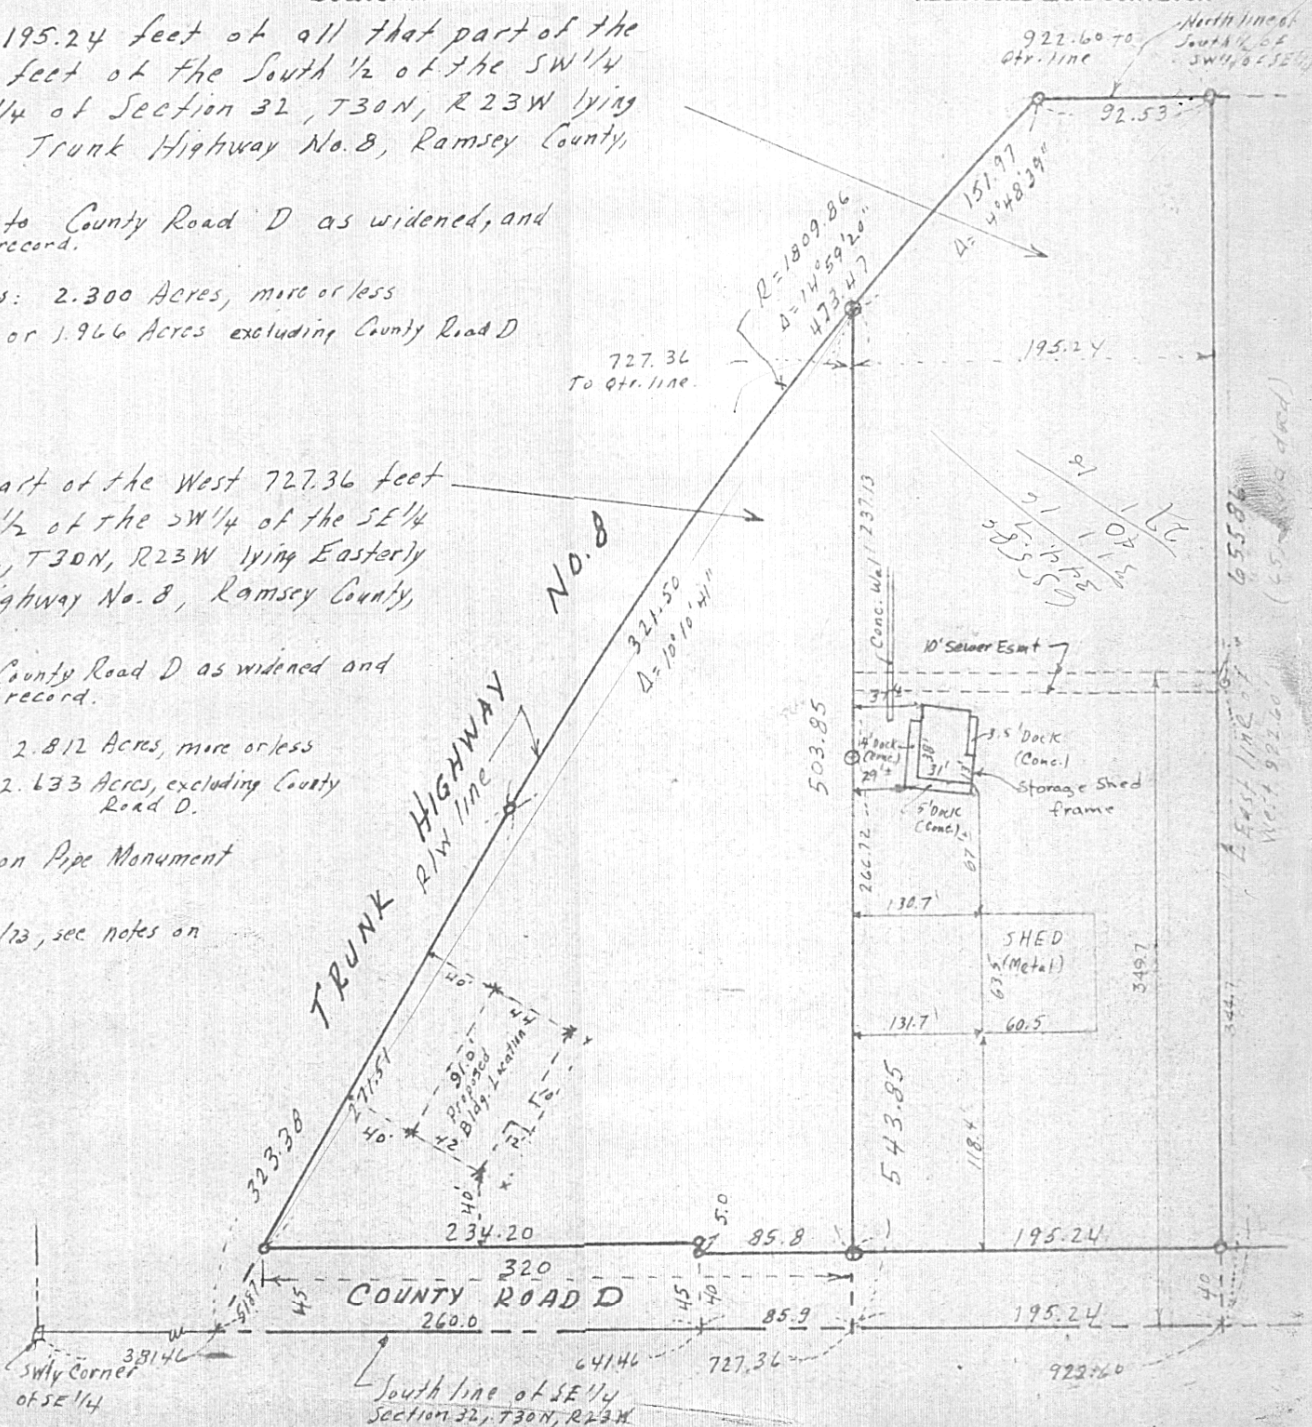 195.24 feet of all that part of the
feet of the South 1/2 of the SW 1/4
1/4 of Section 32, T30N, R23W lying
Trunk Highway No. 8, Ramsey County,
to County Road D as widened, and
record.
s: 2.300 Acres, more or less
or 1.966 Acres excluding County Road D
art of the West 727.36 feet
1/2 of the SW 1/4 of the SE 1/4
, T30N, R23W lying Easterly
ghway No. 8, Ramsey County,
County Road D as widened and
record.
2.812 Acres, more or less
2.633 Acres, excluding County
Road D.
on Pipe Monument
/73, see notes on
922.60 to
Qtr. line
North line of
South 1/2 of
SW 1/4 of SE 1/4
92.53
151.97
Δ= 4°48'39"
R=1809.86
Δ=14°59'20"
473.47
727.36
To Qtr. line.
195.24
237.13
Conc. Wall
655.86
East line of
West 922.60'
10' Sewer Esmt
TRUNK HIGHWAY NO. 8
R/W line
321.50
Δ=10°10'41"
503.85
4' Dock
(Conc)
29'±
38'
31'
3.5' Dock
(Conc.)
Storage Shed
frame
5' Dock
(Conc.)
266.72
67'±
130.7'
SHED
(Metal)
63.5'
131.7'
60.5
349.7
344.7
543.85
118.4
40'
44
91.0'
Proposed
Bldg. Location
40'
42
40'
271.51
323.38
234.20
5.0
85.8
195.24
320
COUNTY ROAD D
51.87
45
45
40
40
260.0
85.9
195.24
381.46
641.46
727.36
922.60
SWly Corner
of SE 1/4
South line of SE 1/4
Section 32, T30N, R23W